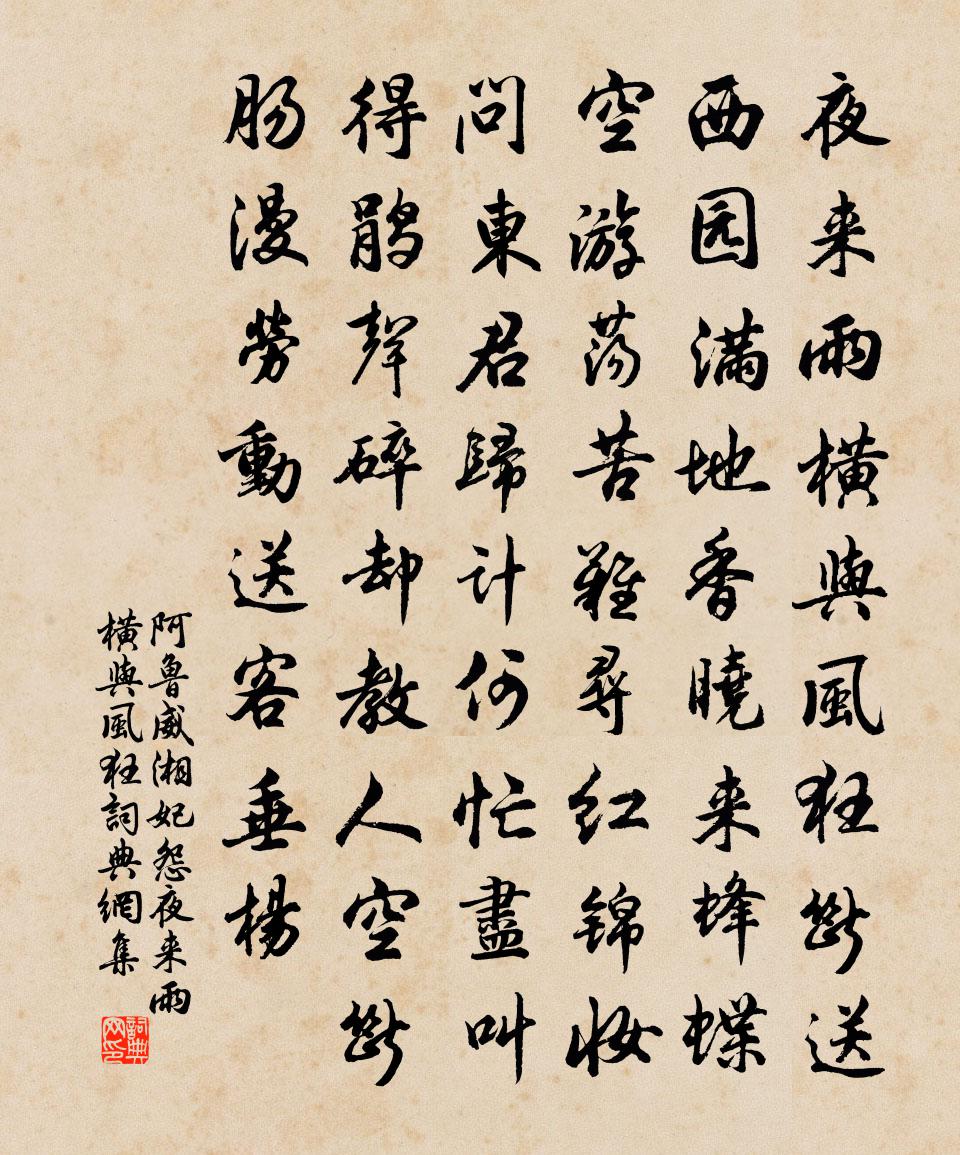 夜来雨横與風狂斷送
西园滿地香曉来蜂蝶
空游荡苦難尋红锦妝
問東君歸計何忙盡叫
得鹃聲碎却教人空斷
肠漫勞動送客垂楊
阿鲁威湘妃怨夜来雨
横與風狂詞典網集
詞典网印